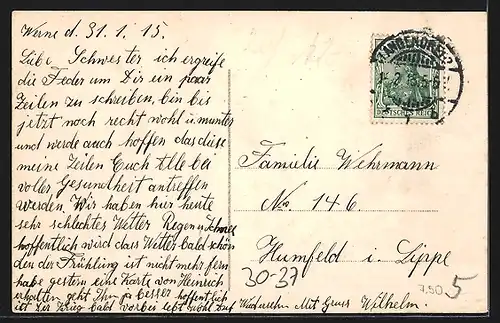 Werne d. 31. 1. 15.
Liebe Schwester ich ergreife
die Feder um Dir ein paar
Zeilen zu schreiben, bin bis
jetzt noch recht wohl u. munter
und werde auch hoffen das diese
meine Zeilen Euch Alle bei
voller Gesundheit antreffen
werden. Wir haben hier heute
sehr schlechtes Wetter Regen u. Schnee
hoffentlich wird das Wetter bald schön
den der Frühling ist nicht mehr fern
habe gestern eine Karte von Heinrich
erhalten geht Ihm ja besser hoffentlich
ist der Krieg bald vorbei lebt wohl Auf Wiedersehn Mit Gruss Wilhelm.
DEUTSCHES REICH
Familie Wehrmann
No 146
Humfeld i. Lippe
30-37
7.50
5